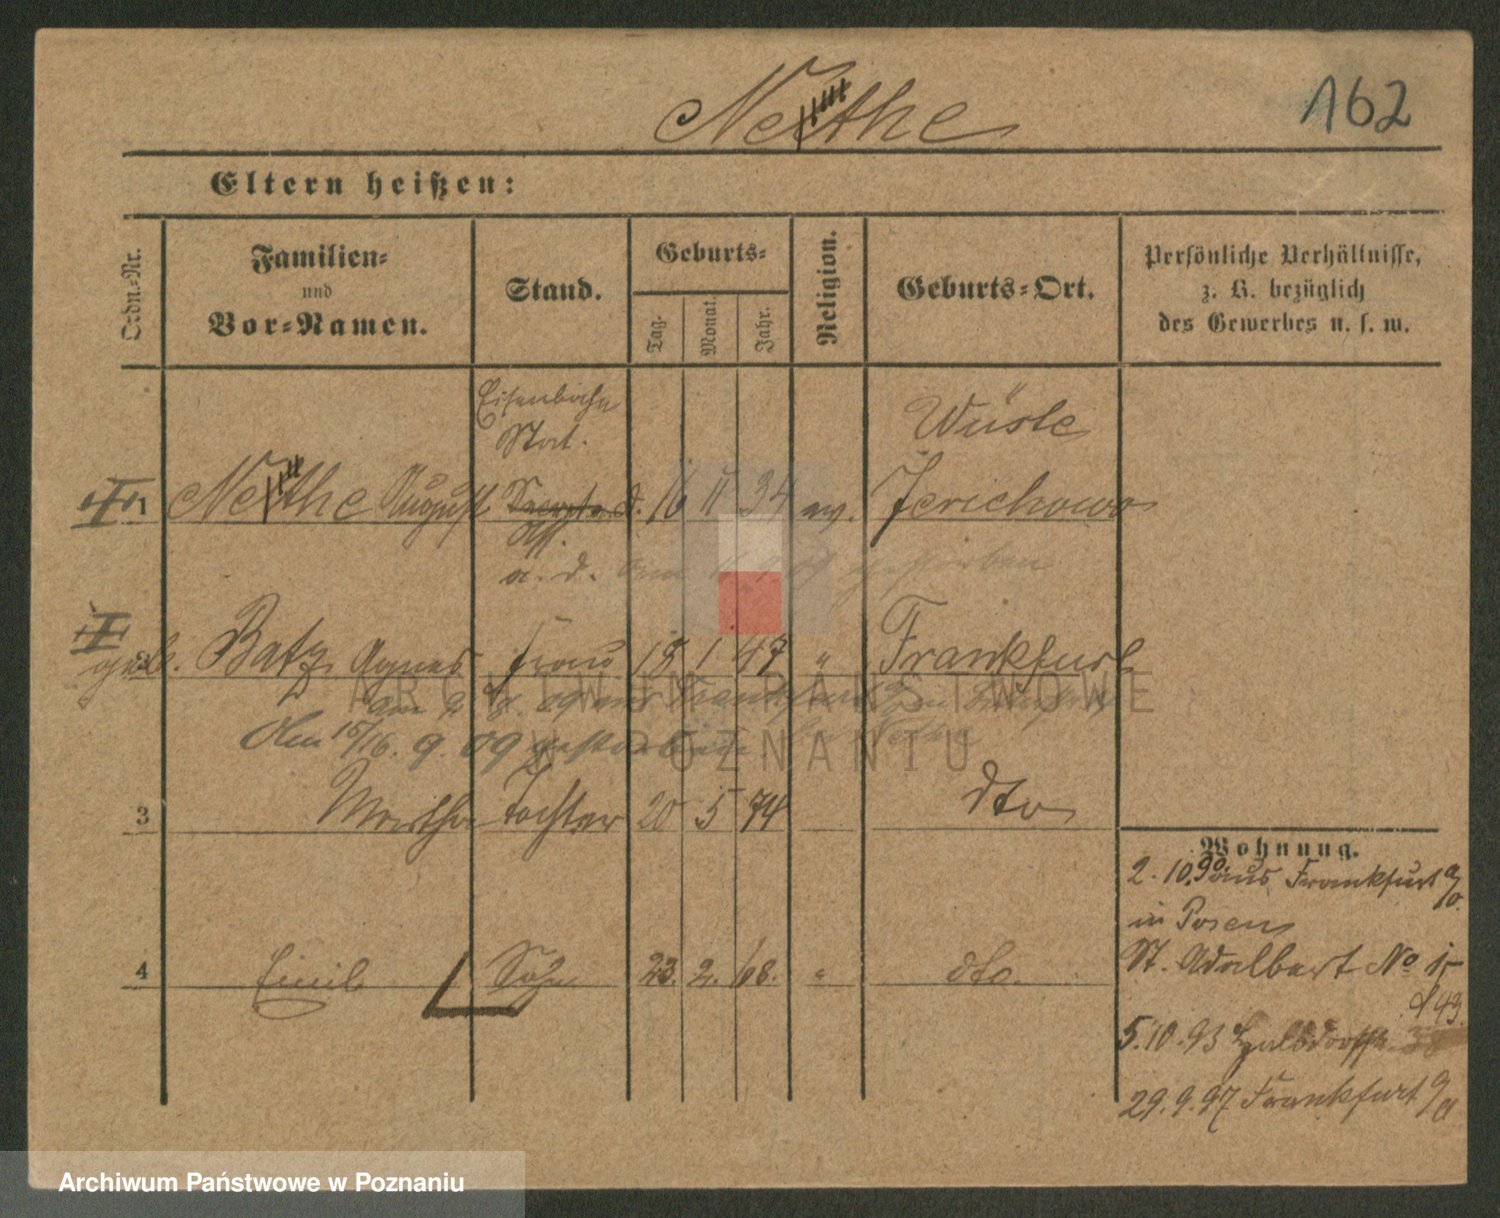 Nethe
162
Eltern heißen:
Ordn.-Nr.
Familien-
und
Vor-Namen.
Stand.
Geburts-
Tag.
Monat.
Jahr.
Religion.
Geburts-Ort.
Persönliche Verhältnisse,
z. B. bezüglich
des Gewerbes u. s. w.
Eisenbahn
Stat.
Wüste
1 Nethe August 16 11 34 ev. Jerichowo
Ass.
a. D.
2 geb. Batz Agnes Frau 18 1 47 " Frankfurt
Am 15/16. 9. 09 gestorben
3 Martha Tochter 20 5 74 dto
4 Emil Sohn 23. 2. 68. " dto.
Wohnung.
2. 10. 90 aus Frankfurt a/O.
in Posen
St. Adalbert No
5. 10. 93
29. 9. 97 Frankfurt
ARCHIWUM PAŃSTWOWE
W POZNANIU
Archiwum Państwowe w Poznaniu